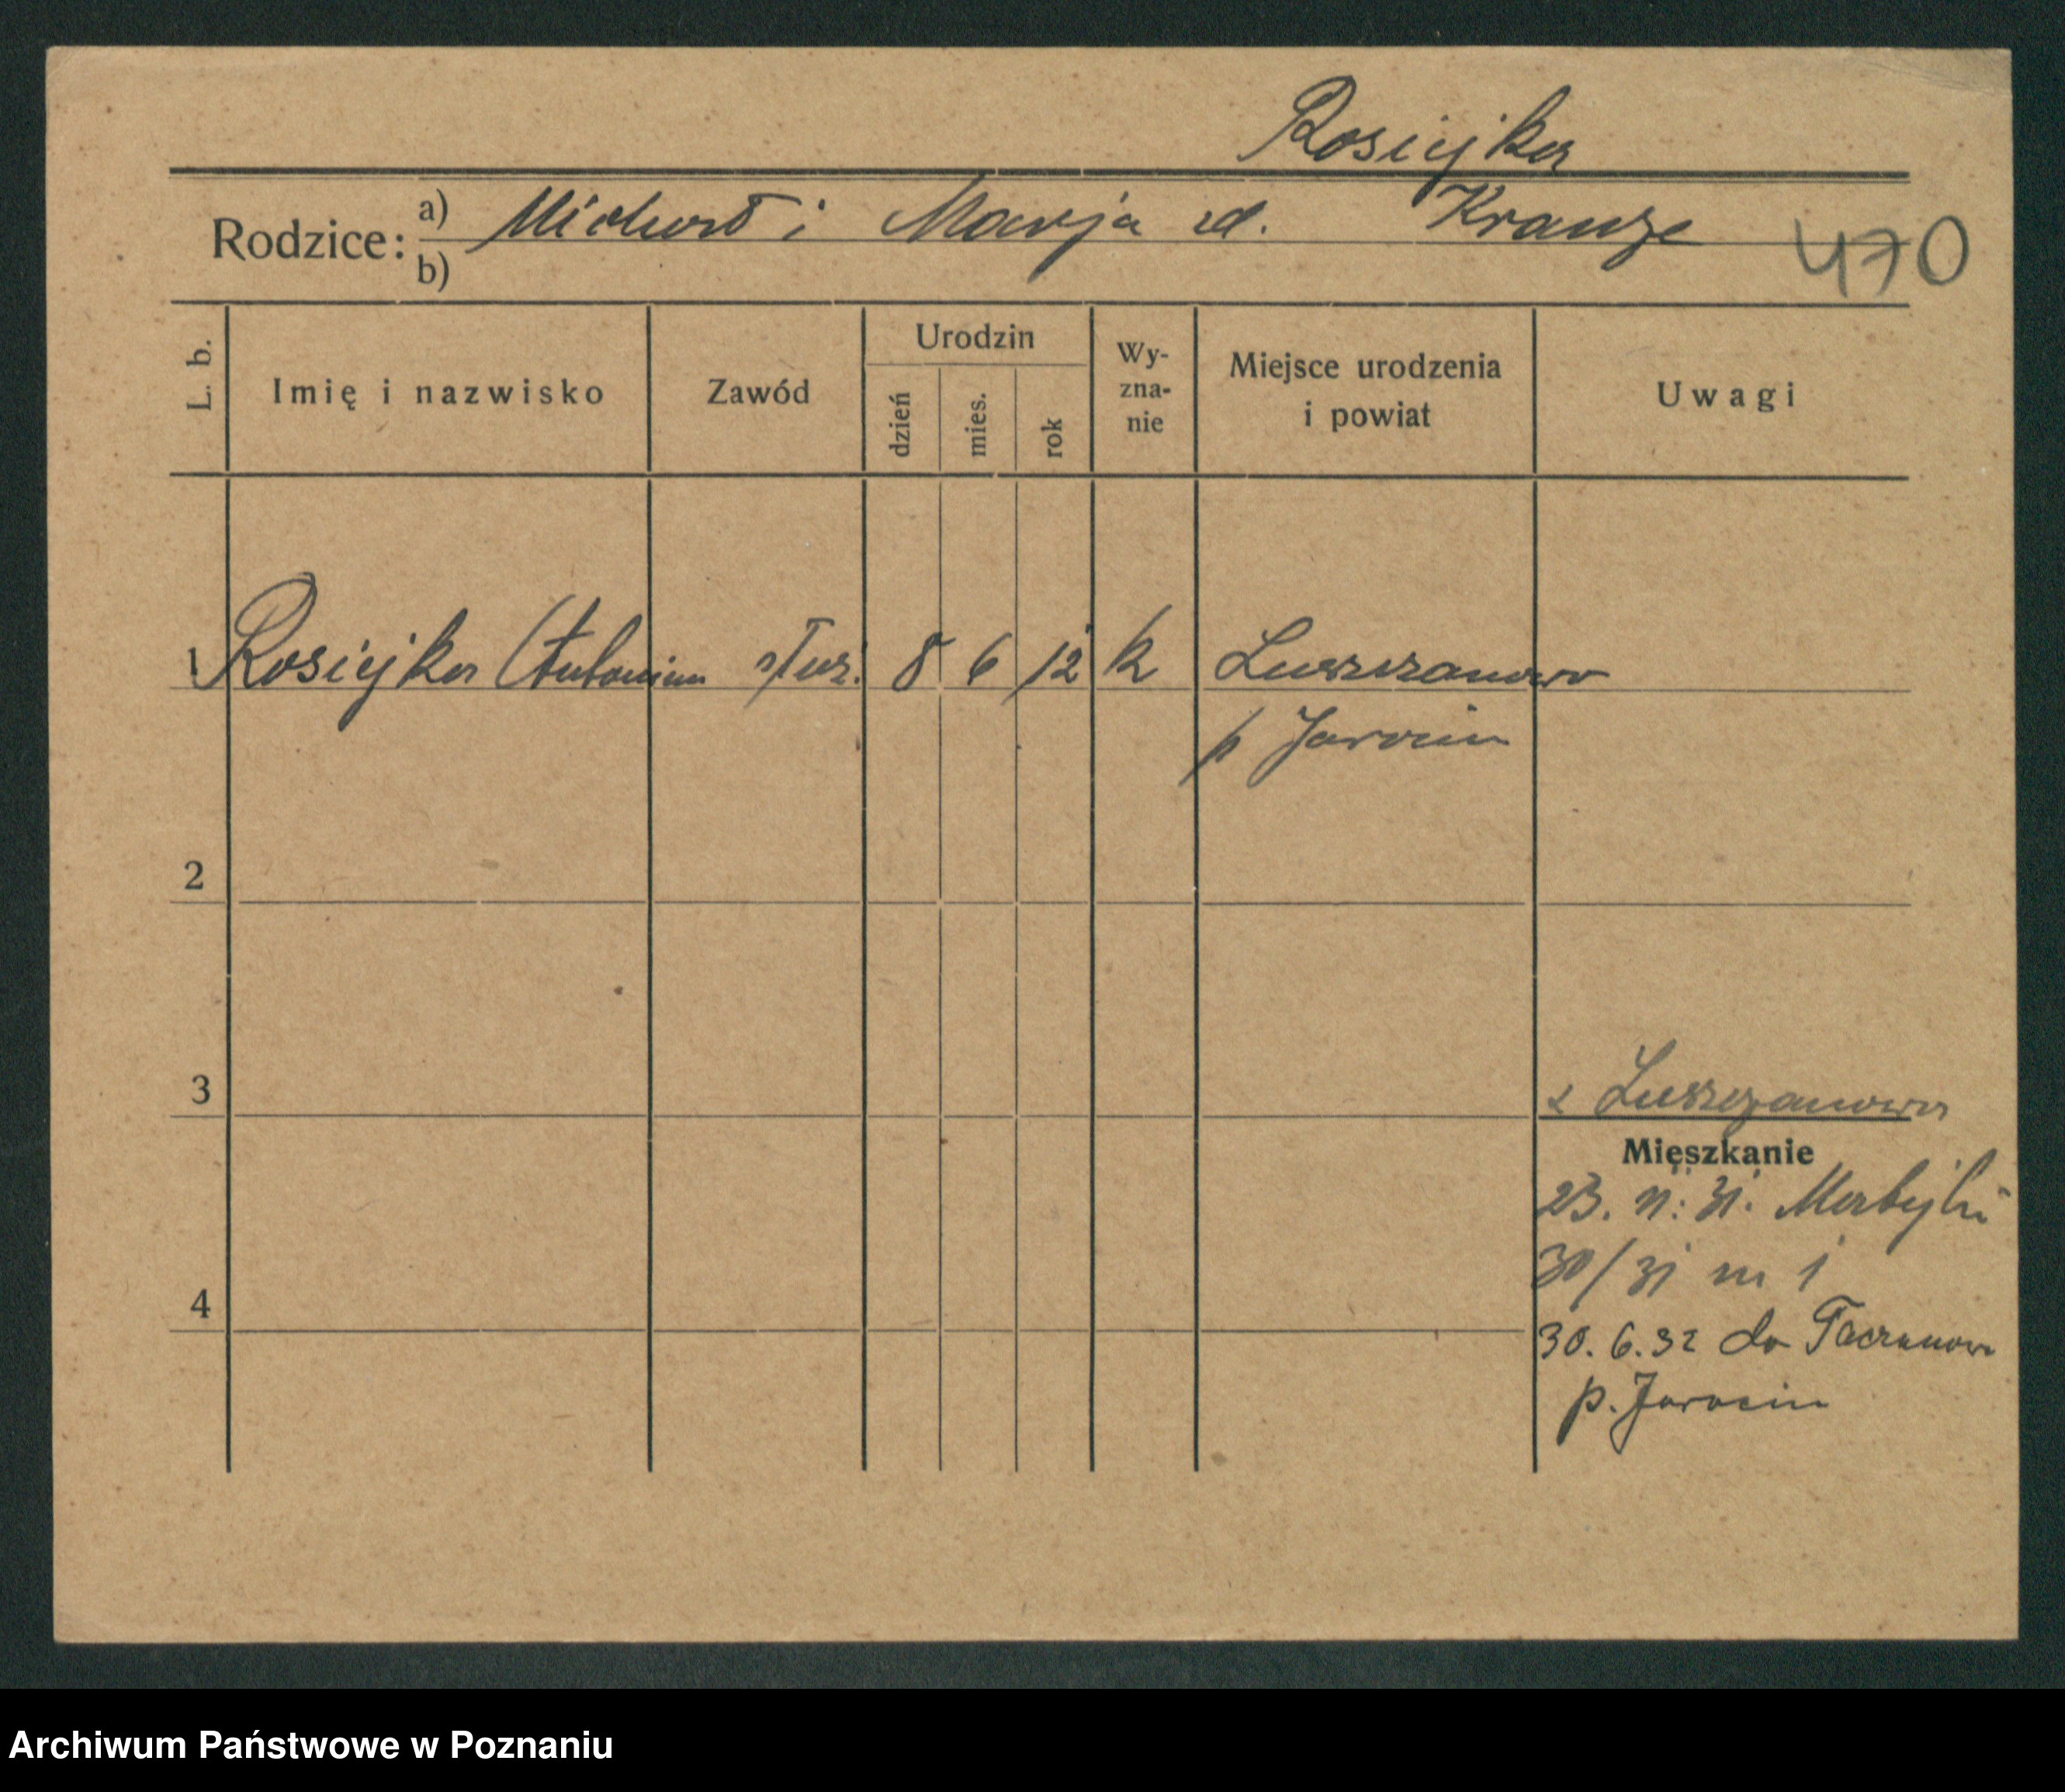 Rosiejka
Rodzice: a) Michał i Marja zd. Krauze
b)
470
L. b. Imię i nazwisko Zawód Urodzin dzień mies. rok Wy-zna-nie Miejsce urodzenia i powiat Uwagi
1 Rosiejka Antonina służ. 8 6 12 k Luszczanowo
p Jarocin
2
3
z Luszczanowa
Mieszkanie
23. 11. 31.
30/31 m 1
4
30. 6. 32 do
p. Jarocin
Archiwum Państwowe w Poznaniu